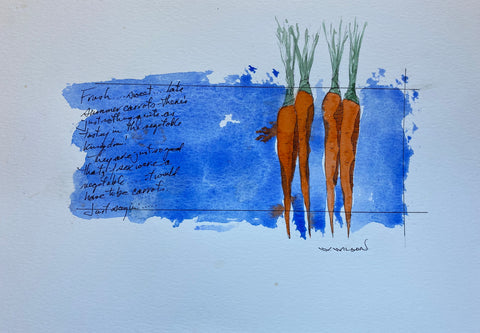 Fresh... sweet... late
summer carrots - there's
just nothing quite as
tasty in the vegetable
kingdom!
They are just so good
that if sex were a
vegetable it would
have to be carrots.
Just sayin'
WILSON